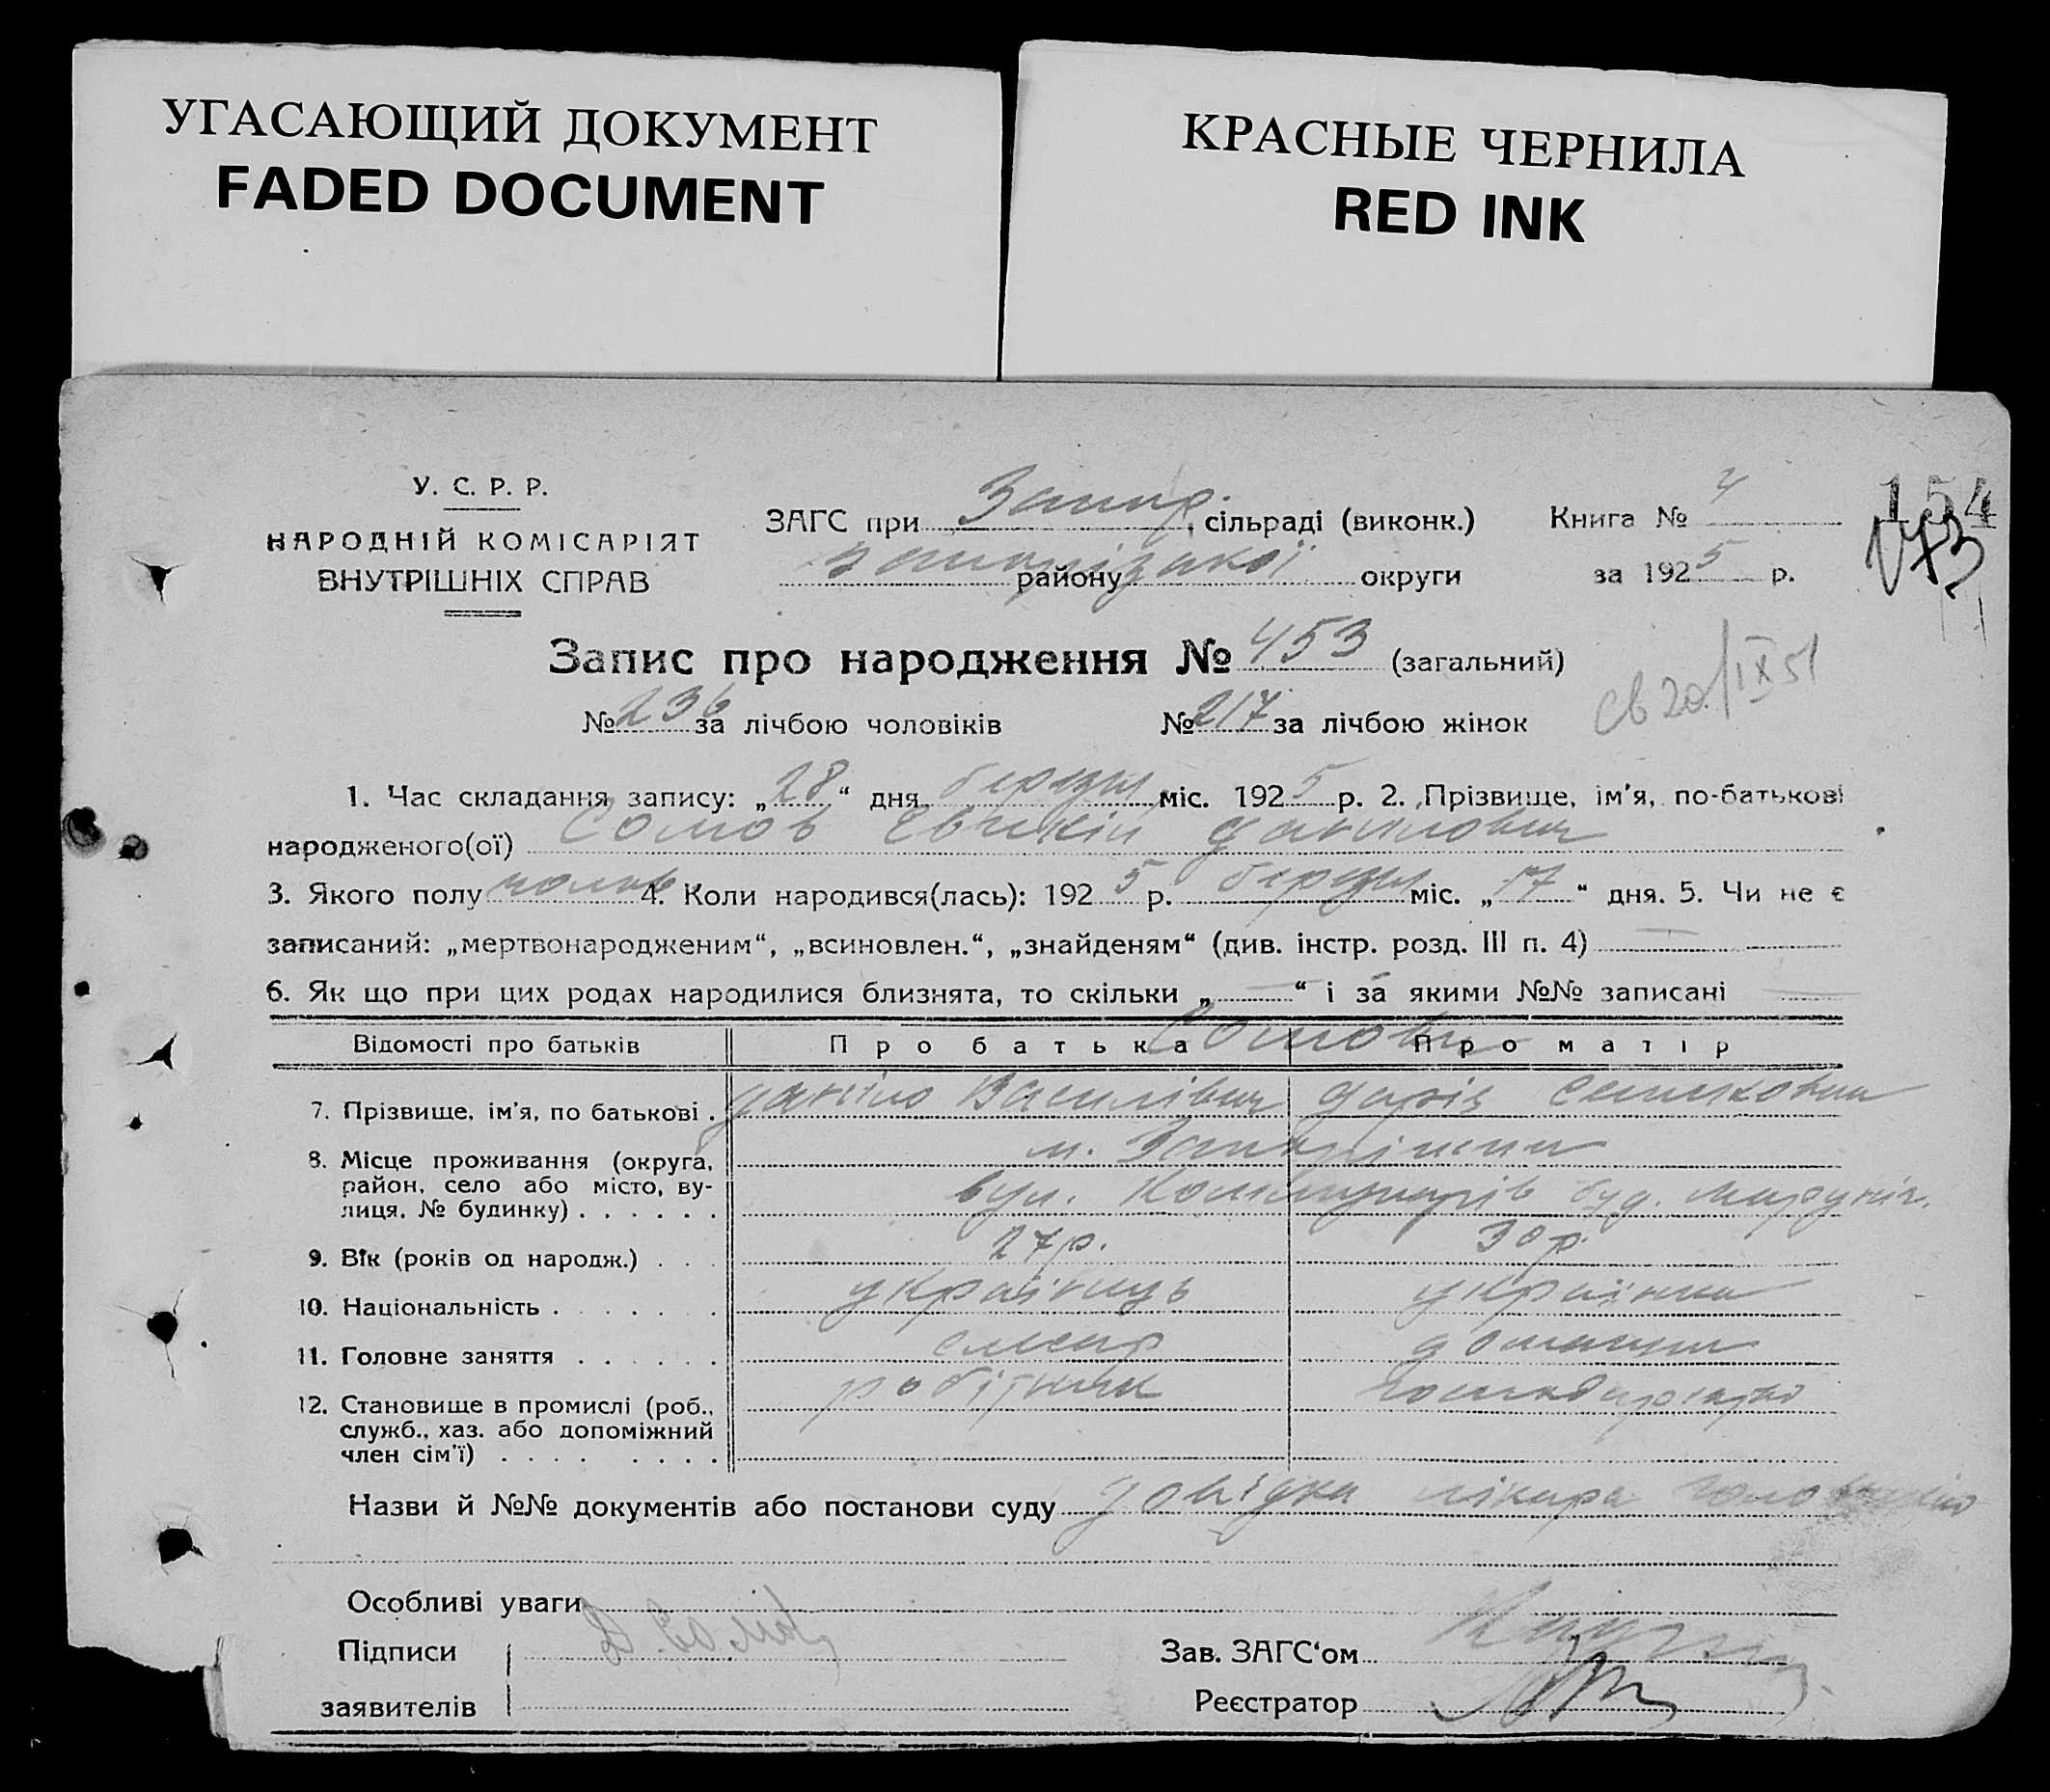 УГАСАЮЩИЙ ДОКУМЕНТ
FADED DOCUMENT
КРАСНЫЕ ЧЕРНИЛА
RED INK
У. С. Р. Р.
НАРОДНІЙ КОМІСАРІЯТ
ВНУТРІШНІХ СПРАВ
ЗАГС при Запор. сільраді (виконк.)
Запорізької району округи
Книга № 4
за 1925 р.
154
173
Запис про народження № 453 (загальний)
№ 236 за лічбою чоловіків № 217 за лічбою жінок
св 20/IX 51
1. Час складання запису: „28“ дня березня міс. 1925 р. 2. Прізвище, ім'я, по-батькові
народженого(ої) Сомов Евгеній Данилович
3. Якого полу чолов. 4. Коли народився(лась): 1925 р. березня міс. „17“ дня. 5. Чи не є
записаний: „мертвонародженим“, „всиновлен.“, „знайденям“ (див. інстр. розд. III п. 4) —
6. Як що при цих родах народилися близнята, то скільки „—“ і за якими №№ записані —
Відомості про батьків Про батька Про матір
Сомови
7. Прізвище, ім'я, по батькові . Даніло Василівич Дарія
8. Місце проживання (округа, район, село або місто, вулиця, № будинку) . . . . . . м. Запоріжжя
вул. Комунарів буд.
9. Вік (років од народж.) . . . 27 р. 30 р.
10. Національність . . . . . . українець українка
11. Головне заняття . . . . . . слюсар домашнє
12. Становище в промислі (роб., служб., хаз. або допоміжний член сім'ї) . . . . . . . . робітник господарство
Назви й №№ документів або постанови суду довідка лікаря
Особливі уваги
Підписи
заявителів
Зав. ЗАГС‘ом
Реєстратор